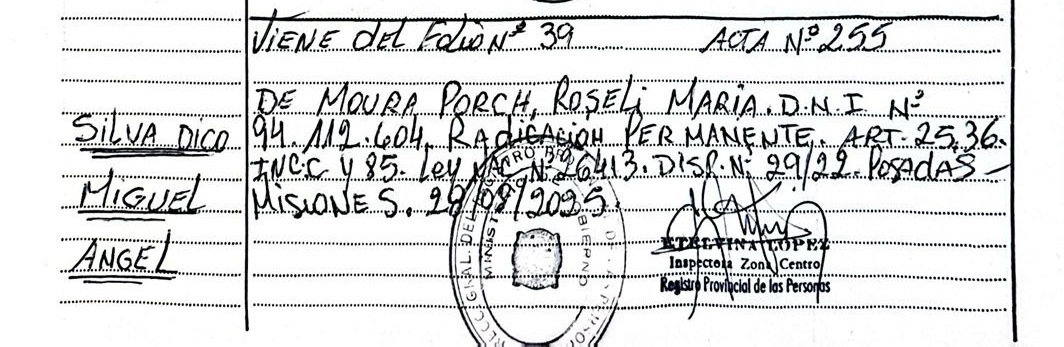 VIENE DEL FOLIO Nº 39 ACTA Nº 255
DE MOURA PORCH, ROSELI MARIA. D.N.I Nº
SILVA DICO
94.112.604. RADICACION PERMANENTE. ART. 25,36.
INC.C Y 85. Ley Nº 26413. DISP. Nº 29/22. POSADAS
MIGUEL
MISIONES. 28/ /2025.
ANGEL
ETELVINA LOPEZ
Inspectora Zona Centro
Registro Provincial de las Personas
GOBIERNO